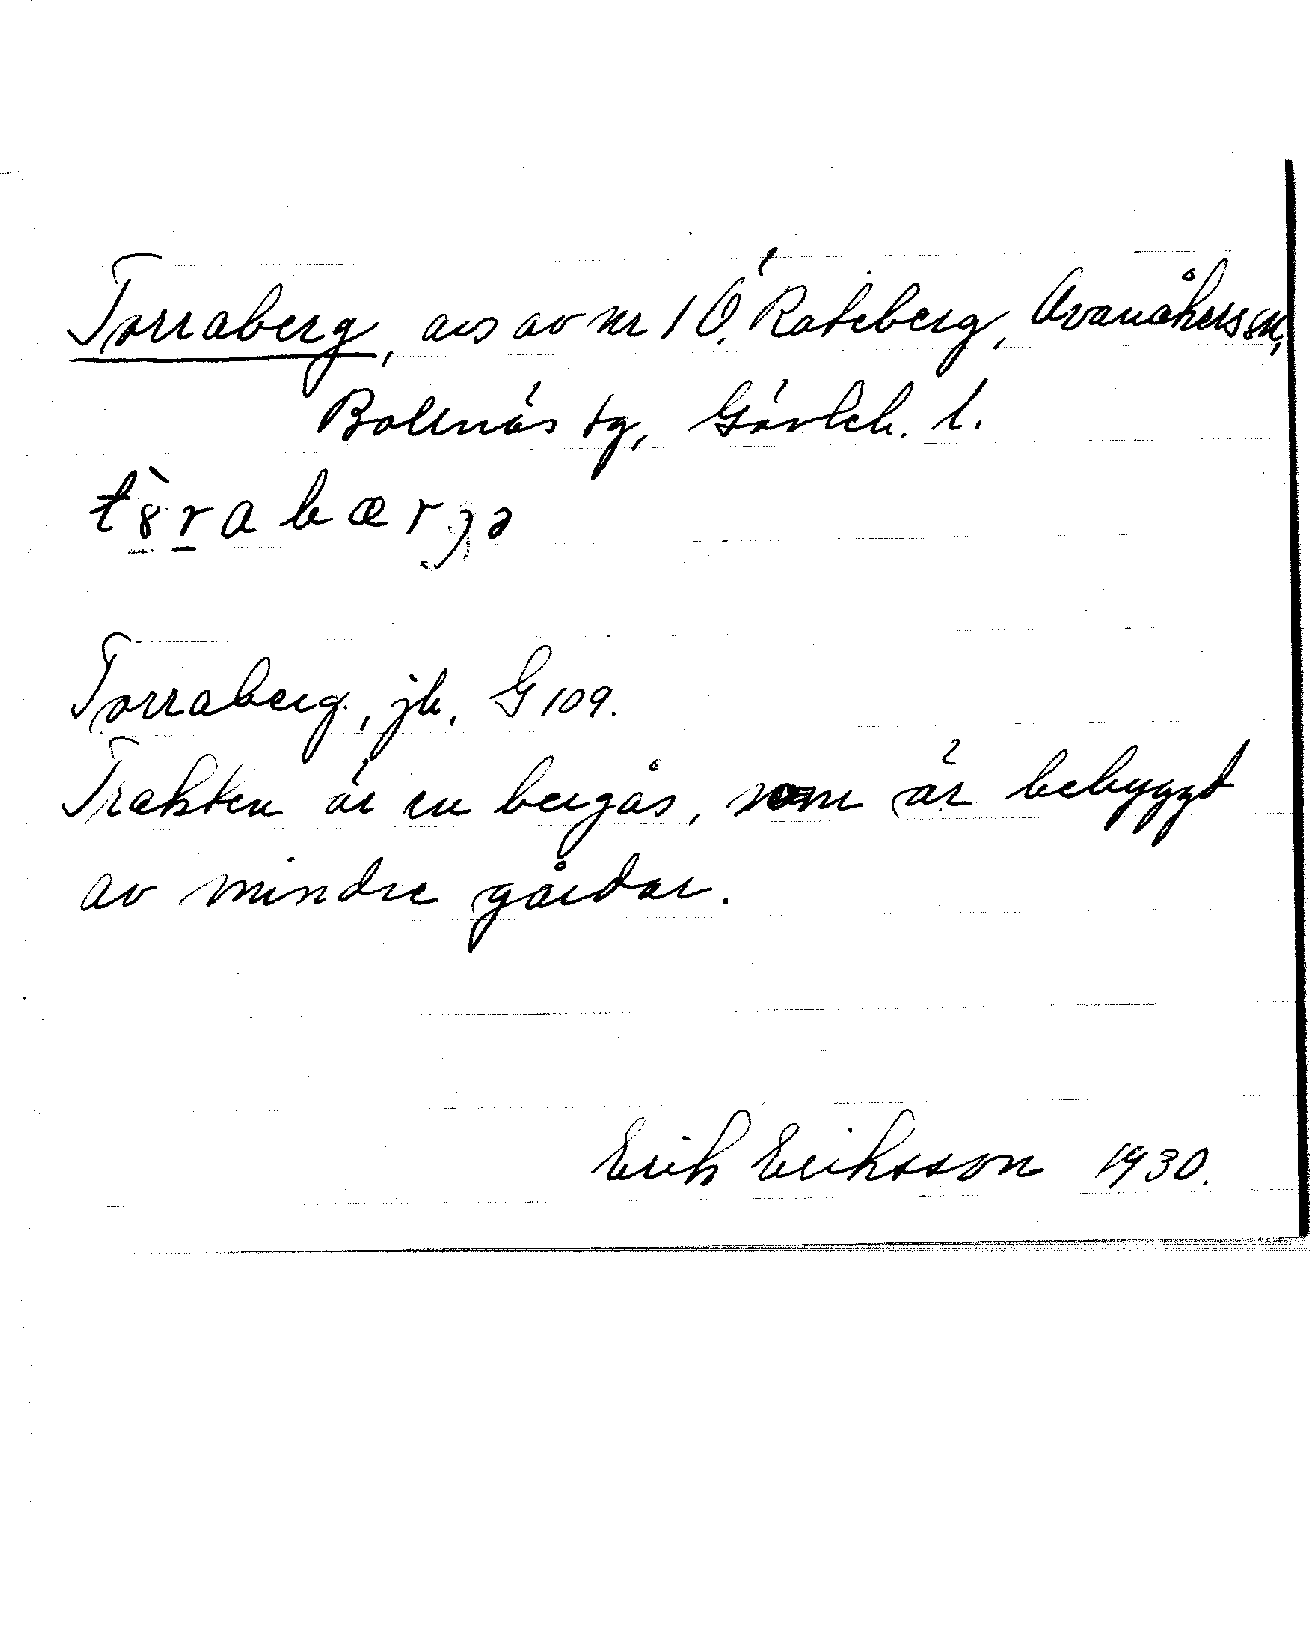 Torraberg, avs av nr 1 Ö. Röteberg, Ovanåkers sn,
Bollnäs tg, Gävleb. l.
tòrabærgə
Torraberg, jb, G 109.
Trakten är en bergås, som är bebyggt
av mindre gårdar.
Erik Eriksson 1930.